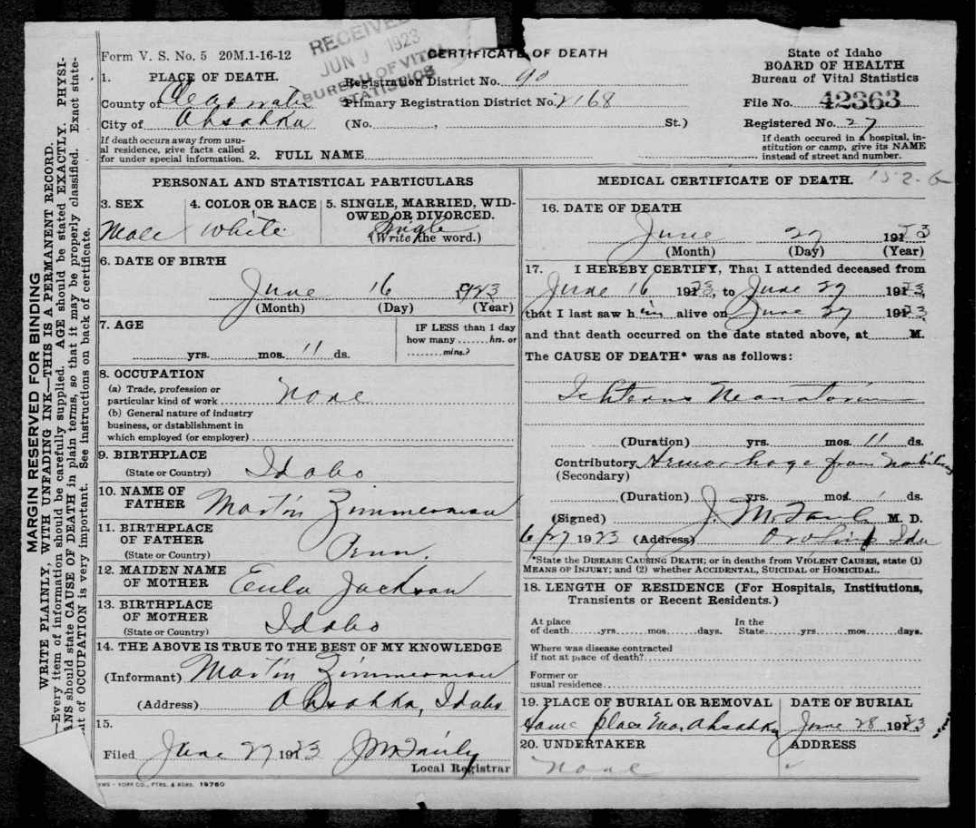 MARGIN RESERVED FOR BINDING
WRITE PLAINLY, WITH UNFADING INK—THIS IS A PERMANENT RECORD.
—Every item of information should be carefully supplied. AGE should be stated EXACTLY. PHYSI-
ANS should state CAUSE OF DEATH in plain terms, so that it may be properly classified. Exact state-
nt of OCCUPATION is very important. See instructions on back of certificate.
Form V. S. No. 5 20M.1-16-12
RECEIVED
JUN 1923
BUREAU OF VITAL
STATISTICS
CERTIFICATE OF DEATH
State of Idaho
BOARD OF HEALTH
Bureau of Vital Statistics
1. PLACE OF DEATH.
Registration District No. 90
County of Clearwater
Primary Registration District No. 2168
File No. 42363
City of Ahsahka
(No. , St.)
Registered No. 27
If death occurs away from usu-
al residence, give facts called
for under special information.
2. FULL NAME
If death occured in a hospital, in-
stitution or camp, give its NAME
instead of street and number.
PERSONAL AND STATISTICAL PARTICULARS
3. SEX
Male
4. COLOR OR RACE
White
5. SINGLE, MARRIED, WID-
OWED OR DIVORCED.
Single
(Write the word.)
6. DATE OF BIRTH
June 16 1923
(Month) (Day) (Year)
7. AGE
yrs. mos. 11 ds.
IF LESS than 1 day
how many hrs. or
mins.?
8. OCCUPATION
(a) Trade, profession or
particular kind of work None
(b) General nature of industry
business, or dstablishment in
which employed (or employer)
9. BIRTHPLACE
(State or Country) Idaho
10. NAME OF
FATHER Martin Zimmerman
11. BIRTHPLACE
OF FATHER
(State or Country) Penn.
12. MAIDEN NAME
OF MOTHER Eula Jackson
13. BIRTHPLACE
OF MOTHER
(State or Country) Idaho
14. THE ABOVE IS TRUE TO THE BEST OF MY KNOWLEDGE
(Informant) Martin Zimmerman
(Address) Ahsahka, Idaho
15.
Filed June 27 1923
Local Registrar
19760
MEDICAL CERTIFICATE OF DEATH. 152-6
16. DATE OF DEATH
June 27 1923
(Month) (Day) (Year)
17. I HEREBY CERTIFY, That I attended deceased from
June 16 1923, to June 27 1923,
that I last saw him alive on June 27 1923
and that death occurred on the date stated above, at M.
The CAUSE OF DEATH* was as follows:
Ichterus Neonatorum
(Duration) yrs. mos. 11 ds.
Contributory Hemorrhage from
(Secondary)
(Duration) yrs. mos. 1 ds.
(Signed) M. D.
6/27 1923 (Address) Orofino Ida
*State the DISEASE CAUSING DEATH; or in deaths from VIOLENT CAUSES, state (1)
MEANS OF INJURY; and (2) whether ACCIDENTAL, SUICIDAL or HOMICIDAL.
18. LENGTH OF RESIDENCE (For Hospitals, Institutions,
Transients or Recent Residents.)
At place
of death yrs mos days.
In the
State yrs mos days.
Where was disease contracted
if not at place of death?
Former or
usual residence
19. PLACE OF BURIAL OR REMOVAL
Ahsahka
DATE OF BURIAL
June 28 1923
20. UNDERTAKER
None
ADDRESS